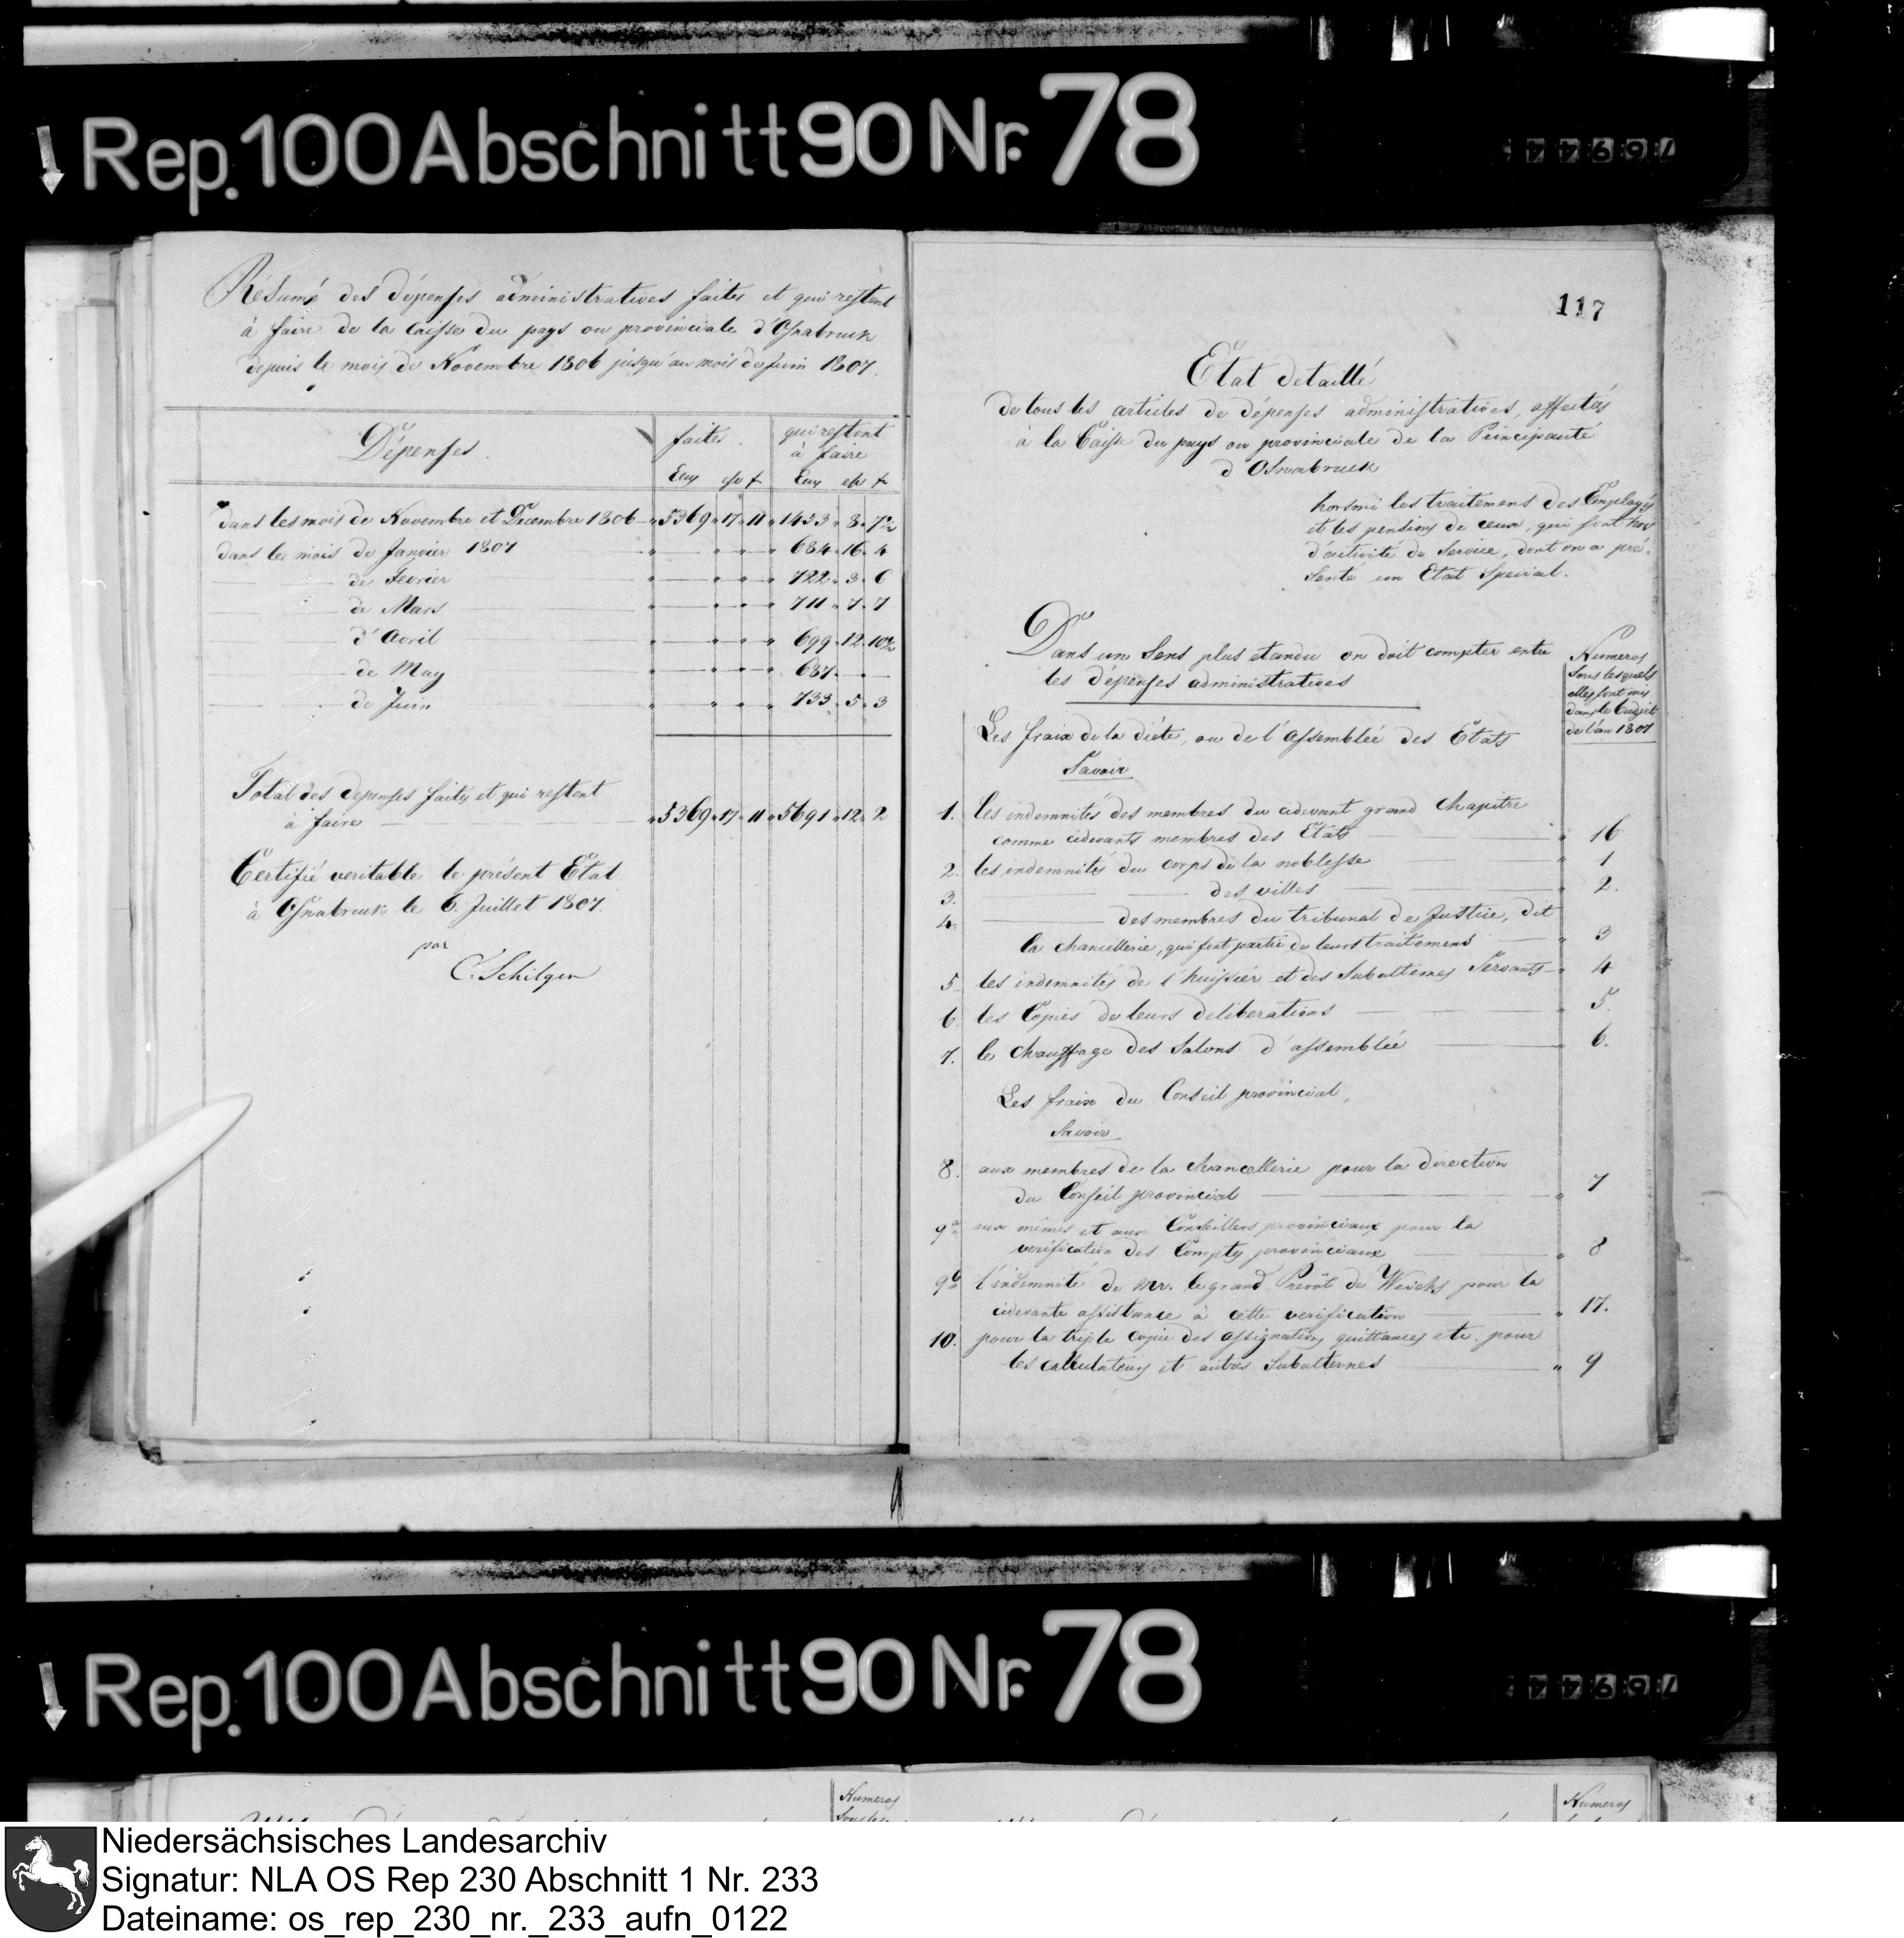 Rep. 100 Abschnitt 90 Nr. 78
Résumé des dépenses administratives faites et qui restent
à faire de la Caisse du pays ou provinciale d'Osnabruck
depuis le mois de Novembre 1806 jusqu'au mois de Juin 1807.
Dépenses. faites. qui restent à faire
dans les mois de Novembre et Decembre 1806 5369 17 11 1453 8 7½
dans les mois de Janvier 1807 684 16 4
de Fevrier 722 3 6
de Mars 711 7 7
d'Avril 699 12 10½
de May 687
de Juin 733 5 3
Total des depenses faites et qui restent
à faire 5369 17 11 5691 12 2
Certifié veritable le présent Etat
à Osnabruck le 6. Juillet 1807.
par
C. Schilgen
117
Etat detaillé
de tous les articles de dépenses administratives, affectés
à la Caisse du pays ou provinciale de la Principauté
d'Osnabruck
hormi les traitemens des Employés
et les pensions de ceux, qui sont hors
d'activité de Service, dont on a pré-
senté un Etat Special.
Dans un Sens plus etendu on doit compter entre
les dépenses administratives
Numeros
sous lesquels
elles sont mis
dans le Budjet
de l'an 1807
Les fraix de la diéte, ou de l'assemblée des Etats
Savoir
1. les indemnités des membres du cidevant grand Chapitre
comme cidevants membres des Etats 16
2. les indemnités du corps de la noblesse 1
3. des villes 2.
4. des membres du tribunal de Justice, dit
la chancellerie, qui font partie de leurs traitemens 3
5. les indemnités de l'huissier et des Subalternes Servants 4
6. les Copies de leurs deliberations 5.
7. le chauffage des Salons d'assemblée 6.
Les fraix du Conseil provincial,
Savoir
8. aux membres de la Chancellerie pour la direction
du Conseil provincial 7
9a aux mêmes et aux Conseillers provinciaux pour la
verification des Comptes provinciaux 8
9b l'indemnité de Mr. le grand Prevôt de Weichs pour la
cidevante assistance à cette verification 17.
10. pour la triple copie des assignations, quittances etc. pour
les calculateurs et autres Subalternes 9
Rep. 100 Abschnitt 90 Nr. 78
Numeros
Numeros
Niedersächsisches Landesarchiv
Signatur: NLA OS Rep 230 Abschnitt 1 Nr. 233
Dateiname: os_rep_230_nr._233_aufn_0122